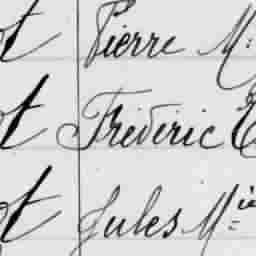 t Pierre M.
t Fréderic E
t Jules Mie